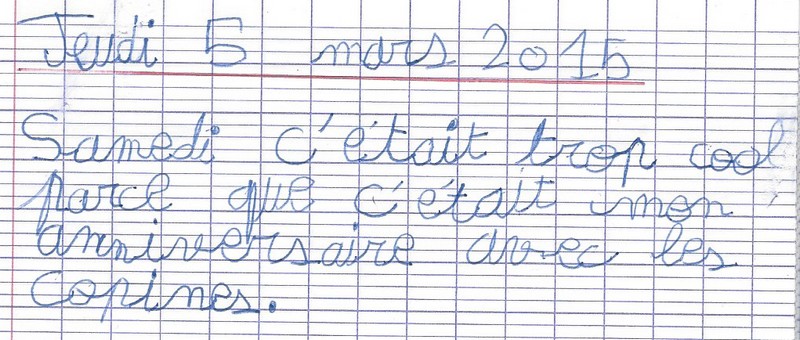 Jeudi 5 mars 2015
Samedi c'était trop cool
parce que c'était mon
anniversaire avec les
copines.